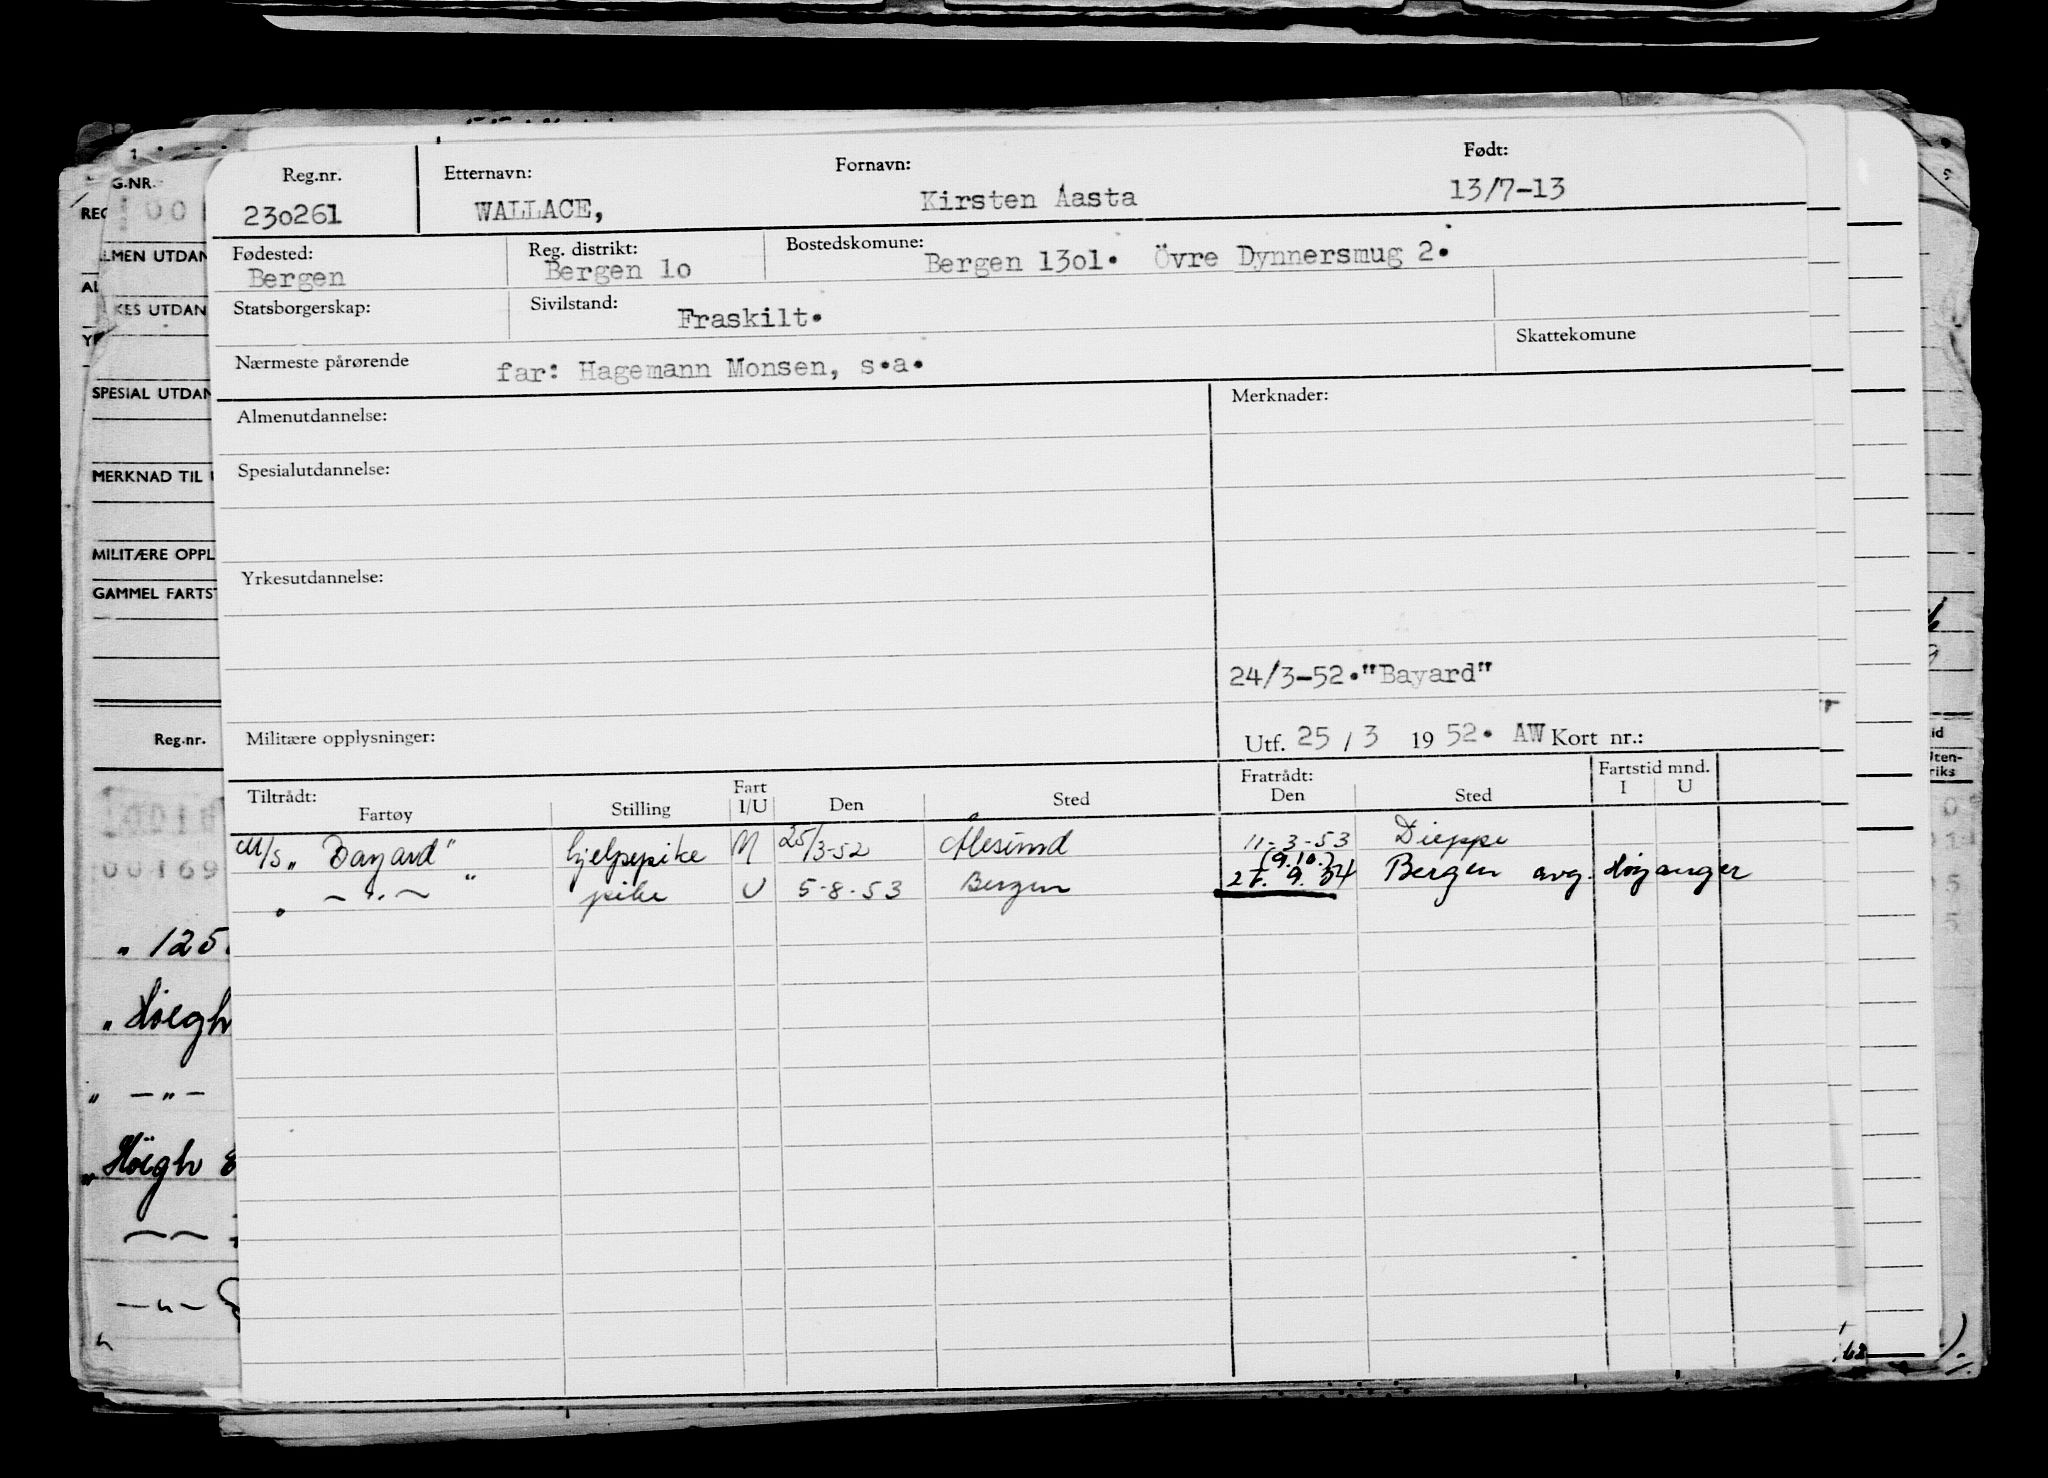 Reg.nr. Etternavn: Fornavn: Født:
230261 WALLACE, Kirsten Aasta 13/7-13
Fødested: Reg. distrikt: Bostedskomune:
Bergen Bergen 1o Bergen 13o1. Övre Dynnersmug 2.
Statsborgerskap: Sivilstand: Fraskilt.
Skattekomune
Nærmeste pårørende far: Hagemann Monsen, s.a.
Almenutdannelse: Merknader:
Spesialutdannelse:
Yrkesutdannelse:
24/3-52."Bayard"
Militære opplysninger: Utf. 25 / 3 19 52. AW Kort nr.:
Tiltrådt: Fart Fratrådt: Fartstid mnd.
Fartøy Stilling I/U Den Sted Den Sted I U
M/S „ Bayard" hjelpepike 25/3-52 Ålesund 11-3-53 Dieppe
(9.10.)
„ — " — " pike U 5-8-53 Bergen 9. 54 Bergen avg. Höyanger
G.NR.
REG
LMEN UTDAN
AL
KES UTDAN
Y
SPESIAL UTDAN
MERKNAD TIL U
MILITÆRE OPPL
GAMMEL FARTST
Reg.nr.
00169
„ 125
„ Höegh
„ — „ —
„ Höegh
— „ —
id
Uten-
riks